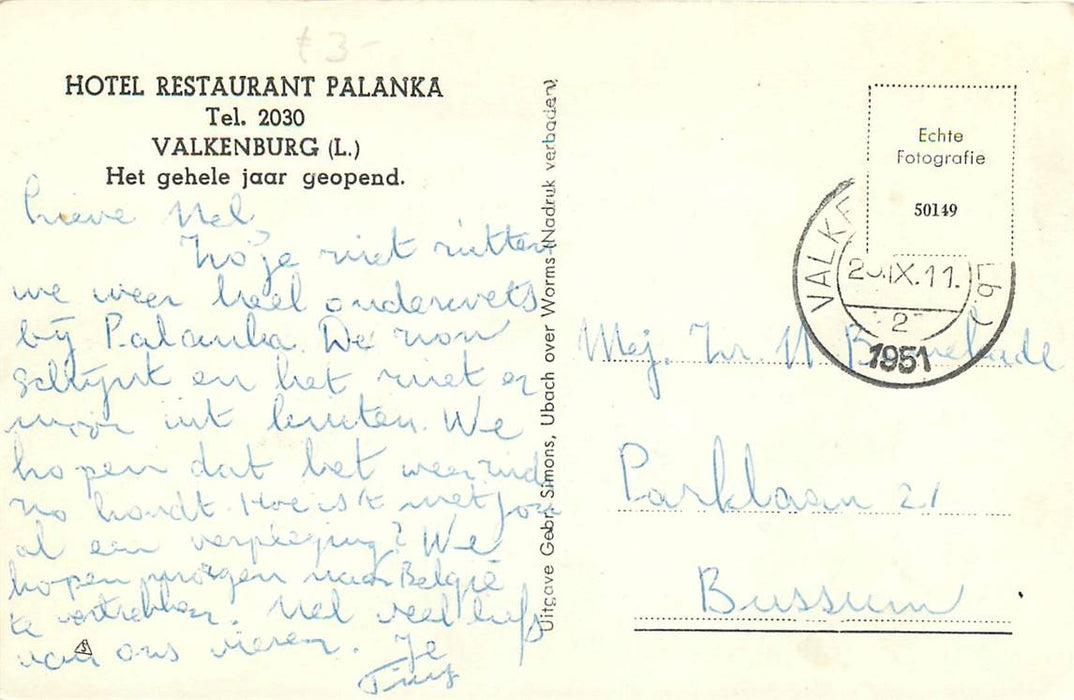 HOTEL RESTAURANT PALANKA
Tel. 2030
VALKENBURG (L.)
Het gehele jaar geopend.
Lieve Nel,
Zo je niet zitten
we weer heel onderwets
bij Palanka. De zon
schijnt en het ziet er
mooi uit buiten. We
hopen dat het weer
zo houdt. Hoe is 't met jou
al een verpleging? We
hopen morgen naar België
te vertrekken. Nel veel liefs
van ons vieren. Je
Uitgave Gebr. Simons, Ubach over Worms (Nadruk verboden)
Echte
Fotografie
50149
VALKE
IX.11.
2
1951
Mej.
Parklaan 21
Bussum